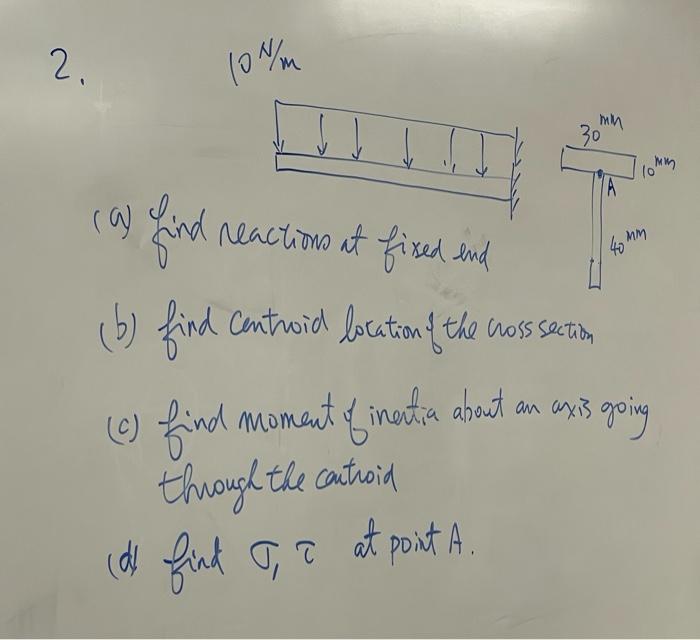 2.
10 N/m
30 mm
10 mm
A
40 mm
(a) find reactions at fixed end
(b) find centroid location of the cross section
(c) find moment of inertia about an axis going
through the centroid
(d) find σ, τ at point A.